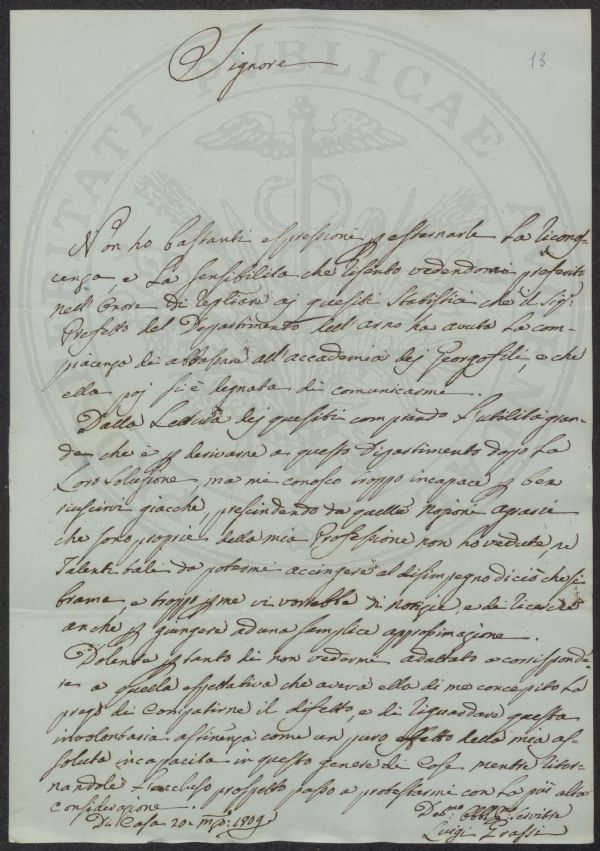 13
Signore
Non ho bastanti espressioni p esternarle la ricono-
scenza, e la sensibilità che risento vedendomi preferito
nell'Onore di replicare aj quesiti Statistici che il Sig:
Prefetto del Dipartimento dell'Arno ha avuta la com-
piacenza di abbassare all'accademia dej Georgofili, e che
ella poj si è degnata di comunicarme.
Dalla Lettura dej quesiti comprendo l'utilità gran-
de che è p derivarne a questo Dipartimento dopo la
Loro soluzione, ma mi conosco troppo incapace p ben
riuscirvi giacche, prescindendo da quelle nozioni agrarie
che sono proprie della mia Professione non ho vedute, ne
Talenti tali da potermi accingere al disimpegno di ciò che si
brama, e troppo p me vi vorrebbe di notizie, e di ricerche
anche p giungere ad una semplice approssimazione.
Dolente p tanto di non vedermi adattato a corrisponde-
re a quella aspettativa che aveva ella di me concepito La
prego di compatirne il difetto, e di riguardare questa
involontaria astinenza come un puro effetto della mia as-
soluta incapacità in questo genere di Cose mentre ritor-
nandole l'accluso prospetto passo a protestarmi con la più alta
considerazione.
Di Casa 20. 1809
Dev:mo Obbl:mo
Luigi Grassi
SOCIETATI PUBLICAE